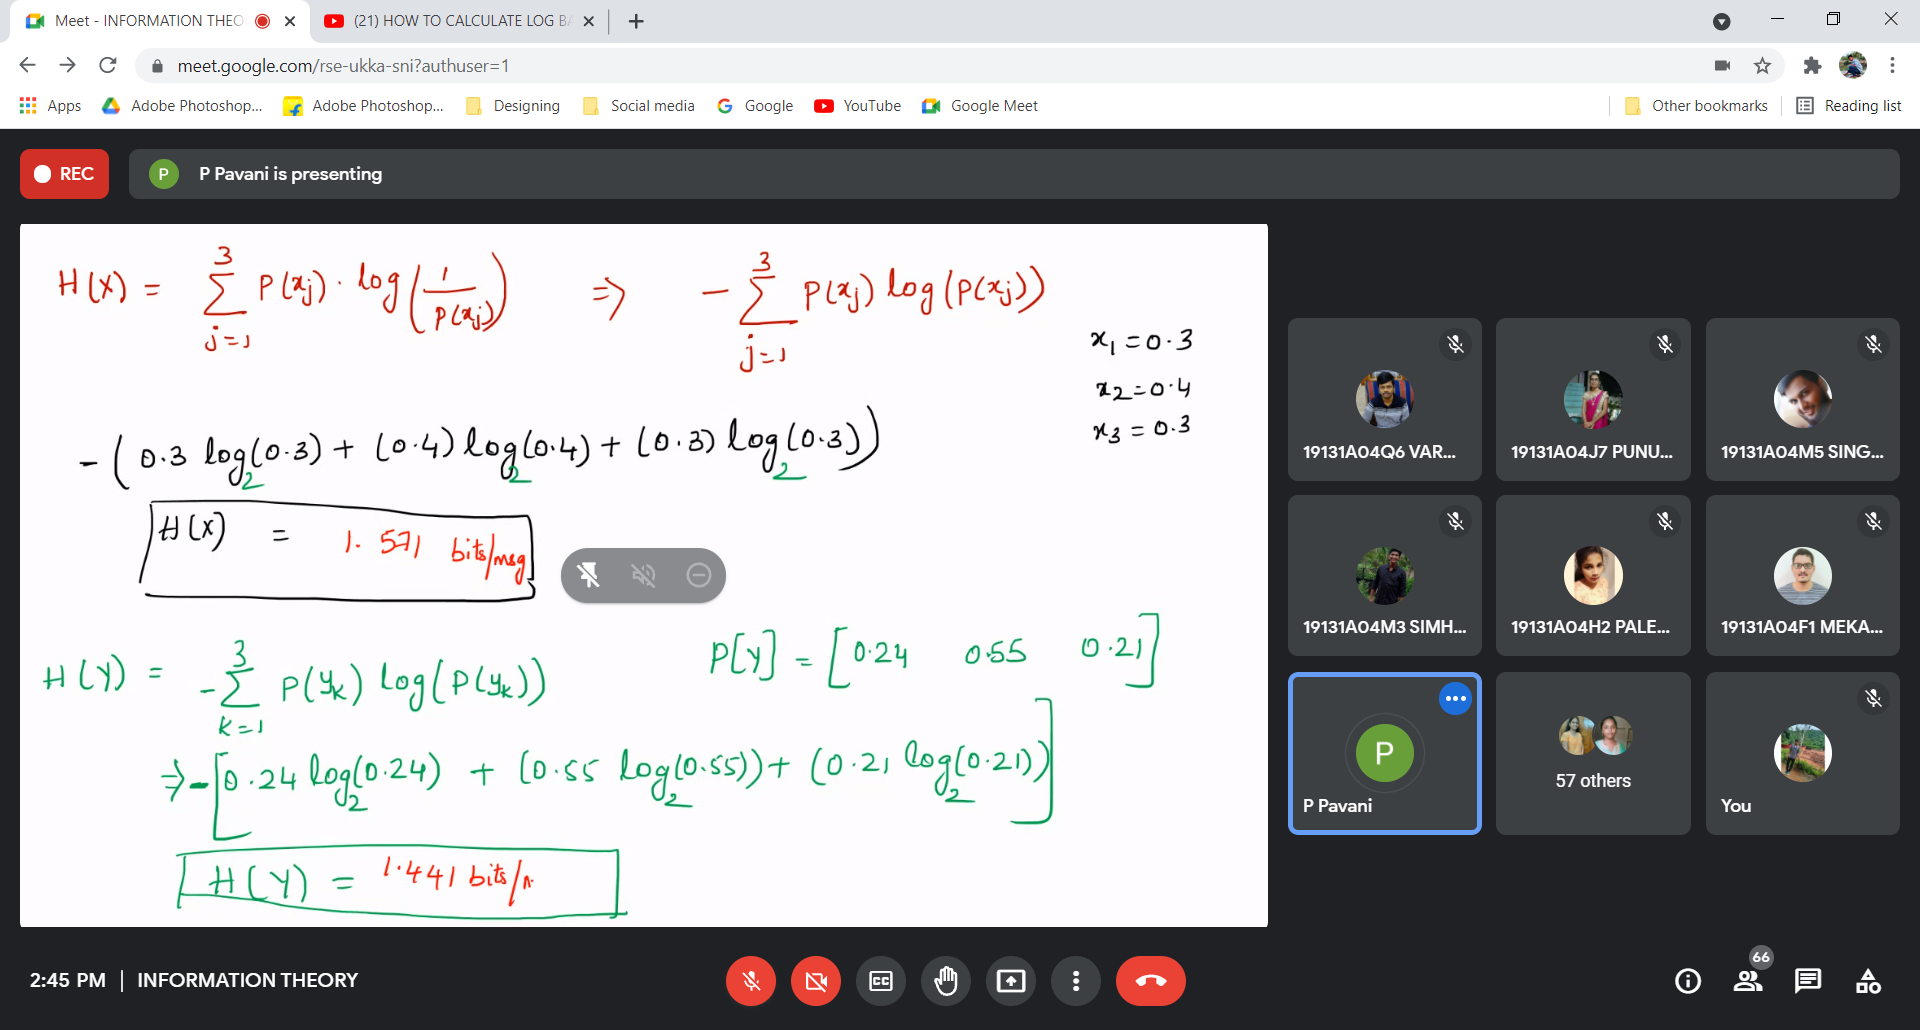 Meet - INFORMATION THEO
(21) HOW TO CALCULATE LOG BA
meet.google.com/rse-ukka-sni?authuser=1
Apps Adobe Photoshop... Adobe Photoshop... Designing Social media Google YouTube Google Meet Other bookmarks Reading list
REC P P Pavani is presenting
H(X) = 3 Σ j=1 P(xj) · log(1/P(xj)) => - 3 Σ j=1 P(xj) log(P(xj))
x1 = 0.3
x2 = 0.4
x3 = 0.3
- (0.3 log2(0.3) + (0.4) log2(0.4) + (0.3) log2(0.3))
H(X) = 1.571 bits/msg
H(Y) = - 3 Σ k=1 P(yk) log(P(yk))
P[Y] = [0.24 0.55 0.21]
=> -[0.24 log2(0.24) + (0.55 log2(0.55)) + (0.21 log2(0.21))]
H(Y) = 1.441 bits/
19131A04Q6 VAR...
19131A04J7 PUNU...
19131A04M5 SING...
19131A04M3 SIMH...
19131A04H2 PALE...
19131A04F1 MEKA...
P
P Pavani
57 others
You
2:45 PM | INFORMATION THEORY
CC
66